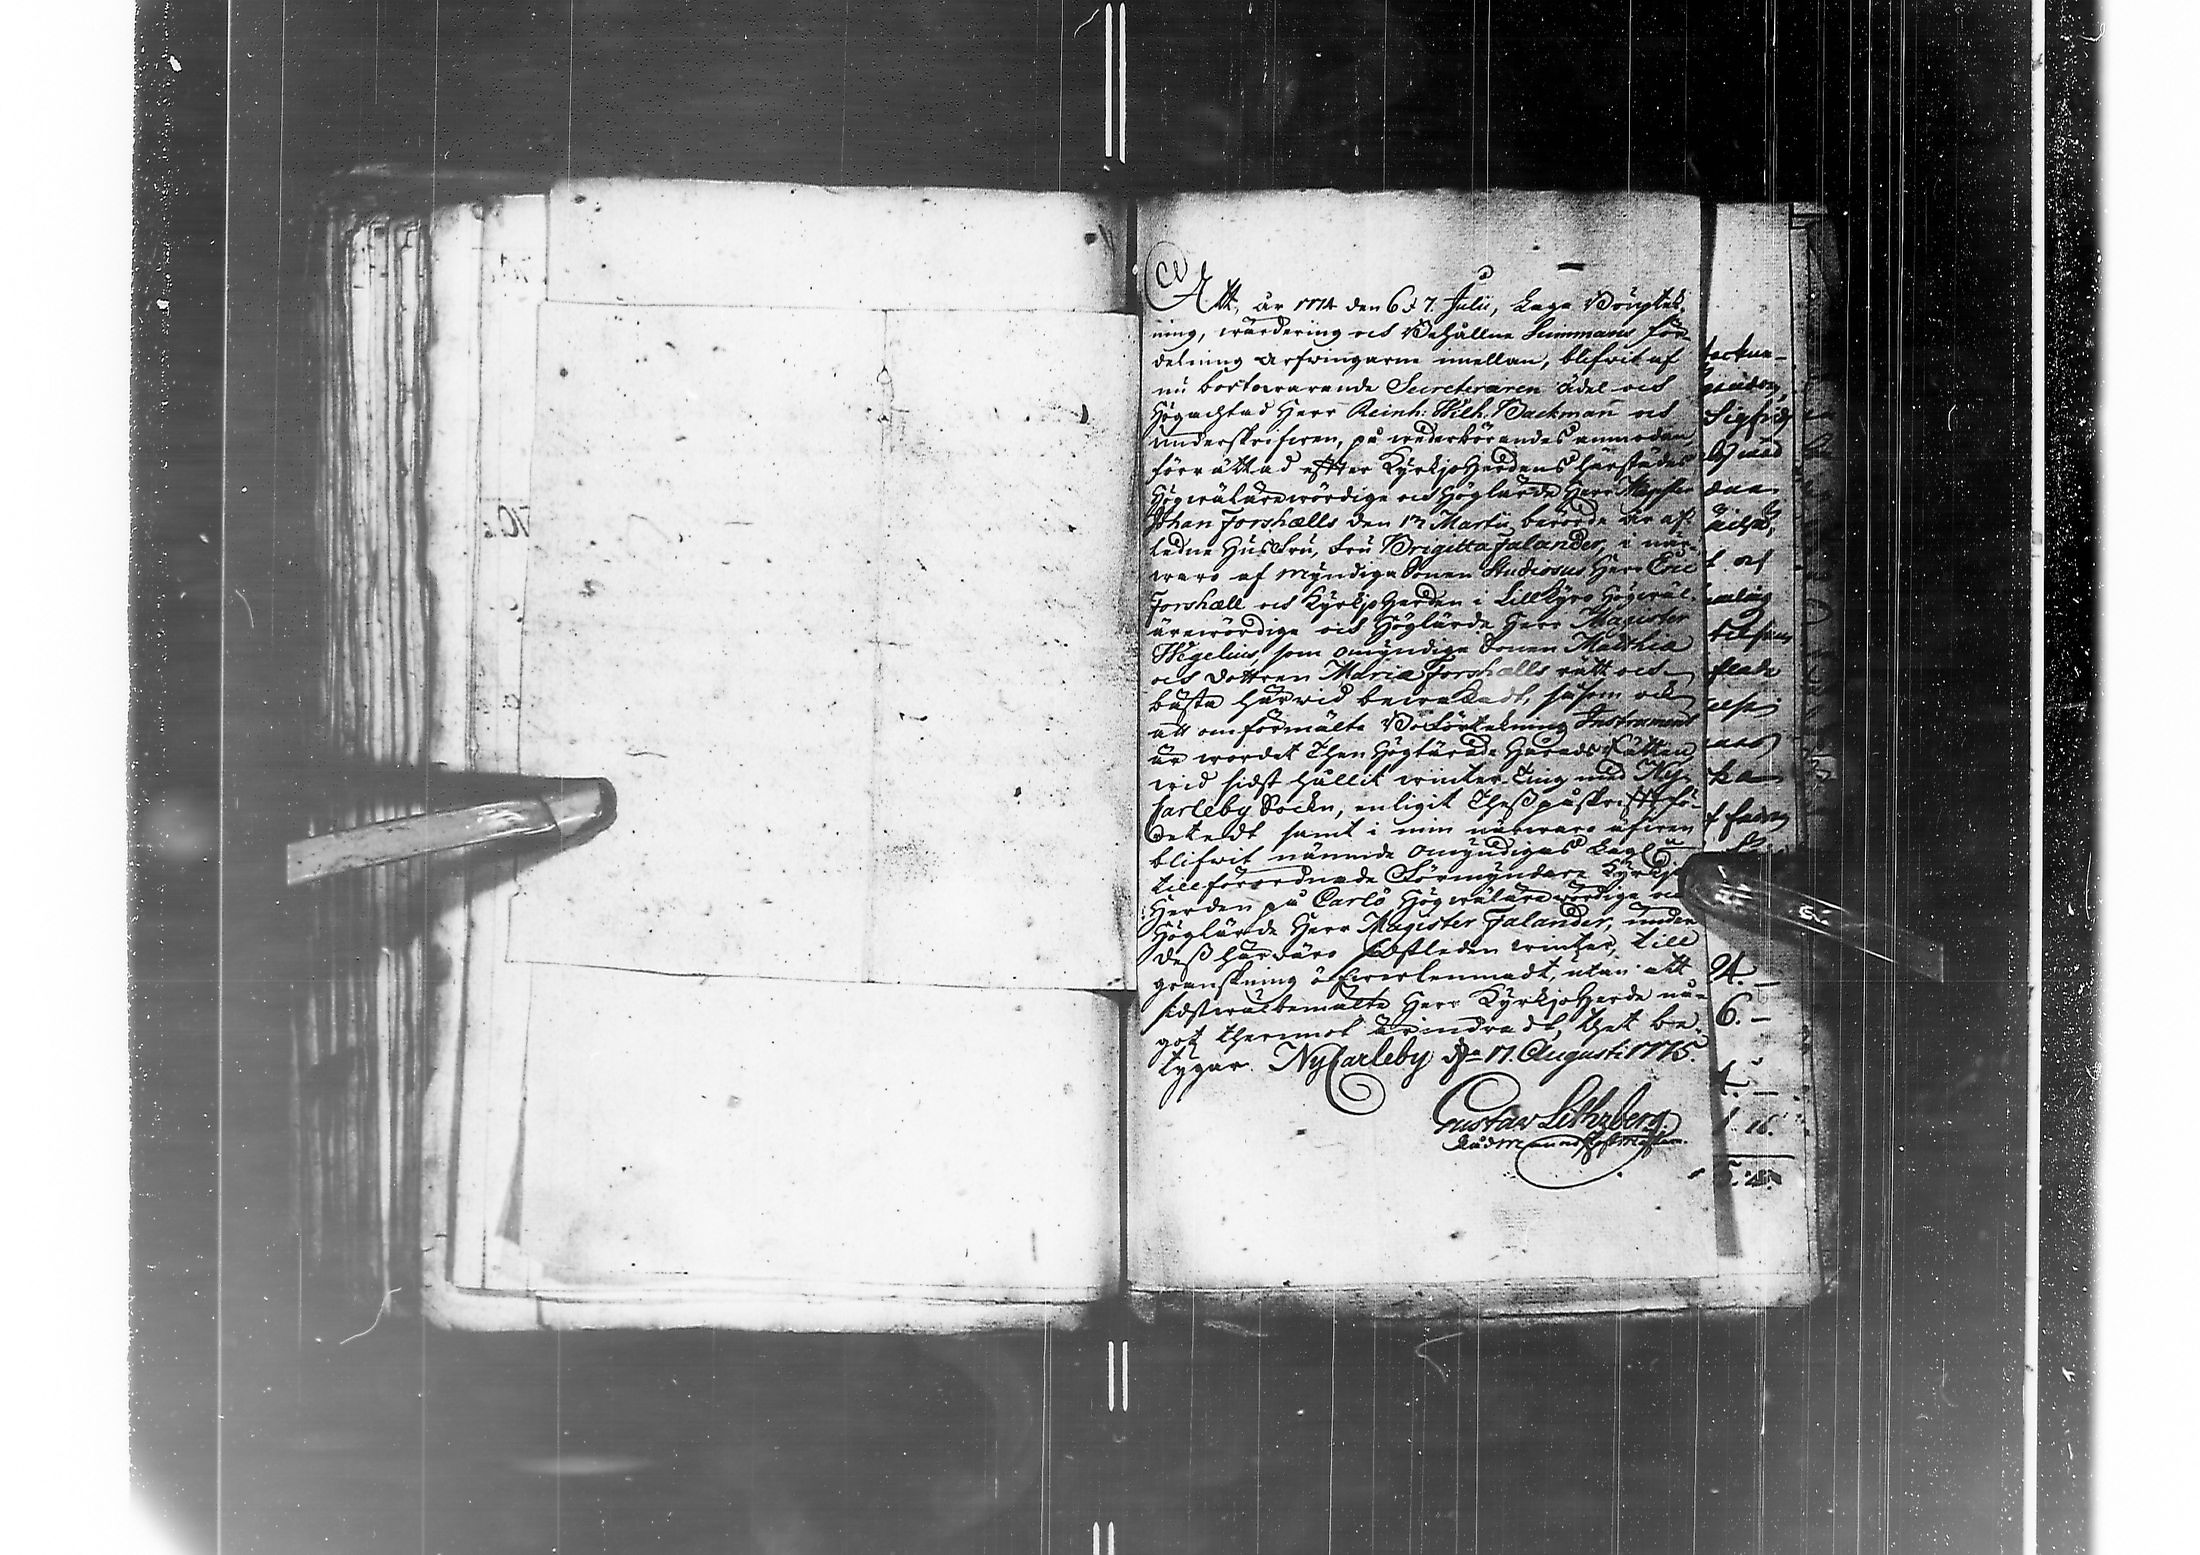 Att, år 1774 den 6 & 7. Julii, Laga Bouptek-
ning, wärdering och Behållne Summans för-
delning arfwingarne imellan, blifwit af
nu bortowarande Secreteraren ädel och
Högachtad Herr Reinh: Wilh: Backman och
underskrifwen, på wederbörandes anmodan
förrättad effter KyrkjoHerdens härstädes
Högwälärewördige och Höglärde Herr Magister
Johan Forshælls den 17 Martii berörde år af-
ledne Husfru, Fru Brigitta Falander, i när-
waro af Myndige Sonen Studiosus Herr Eric
Forshæll och KyrkjoHerden i Lillkyro Högwäl-
ärewördige och Höglärde Herr Magister
Wegelius, som omyndige Sonen Matthia
och Dottren Maria Forshælls rätt och
bästa härwid bewakadt, såsom ock
att omförmälte Boförtekning Instrument
är wordet Then Högtärade HäradsRätten
wid sidst hållit winter Ting med Ny-
Carleby Sockn, enligit Theß påskrifft fö-
retedt samt i min närwaro äfwen
blifwit nämnde Omyndigas Lagl.
tillförordnade Förmyndare Kyrkjo-
Herden på Carlö Högwälärewördige och
Höglärde Herr Magister Falander, under
deß härvaro sidstleden winter, till
granskning öfwerlemnadt, utan att
sidstwälbemälte Herr KyrkjoHerde nå-
got theremot ärindradt, thet be-
tygar. NyCarleby d. 17. Augusti 1775.
Gustav Lithzberg.
Rådman och PostMästare.
24. –
6. –